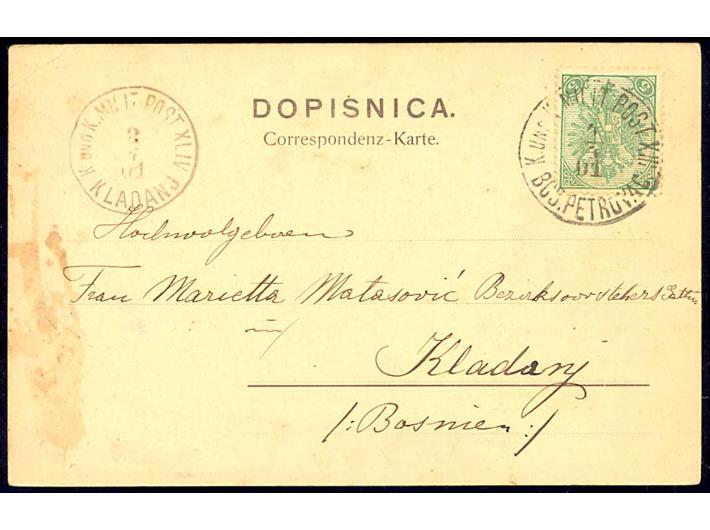 DOPISNICA.
Correspondenz-Karte.
K. UND K. MILIT. POST XLIV
2
01
KLADANJ
5 5
K. UND K. MILIT. POST XII
2
01
BOS. PETROVAC
Hochwolgeboren
Frau Marietta Matasović Bezirksvorstehers Gattin
in
Kladanj
/:Bosnien:/